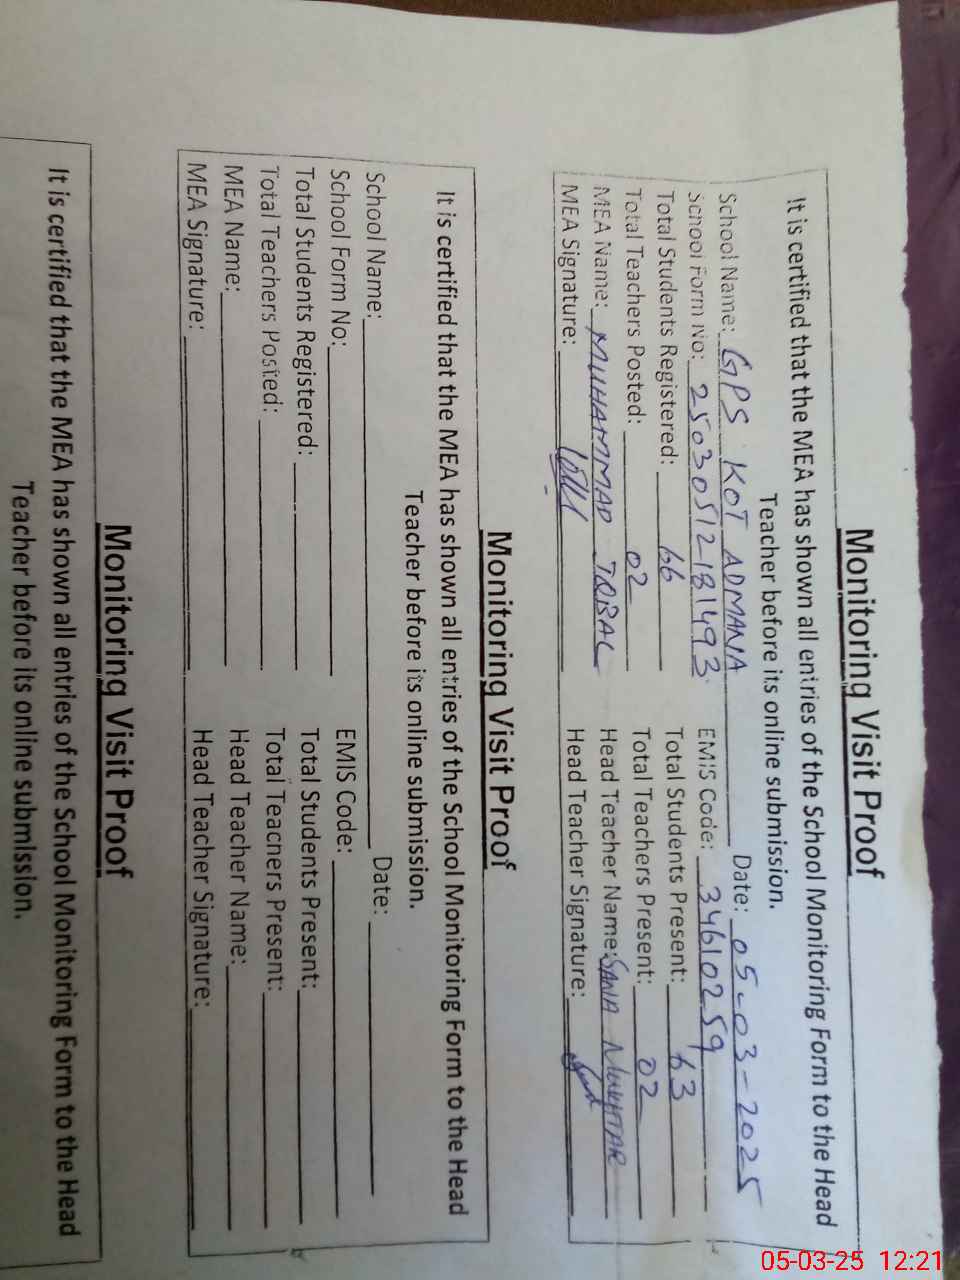 Monitoring Visit Proof
It is certified that the MEA has shown all entries of the School Monitoring Form to the Head
Teacher before its online submission.
School Name: GPS KOT ADMANA Date: 05-03-2025
School Form No: 25030512181493 EMIS Code: 34610259
Total Students Registered: 66 Total Students Present: 63
Total Teachers Posted: 02 Total Teachers Present: 02
MEA Name: MUHAMMAD IQBAL Head Teacher Name: SANIA MUKHTAR
MEA Signature: Head Teacher Signature:
Monitoring Visit Proof
It is certified that the MEA has shown all entries of the School Monitoring Form to the Head
Teacher before its online submission.
School Name: Date:
School Form No: EMIS Code:
Total Students Registered: Total Students Present:
Total Teachers Posted: Total Teachers Present:
MEA Name: Head Teacher Name:
MEA Signature: Head Teacher Signature:
Monitoring Visit Proof
It is certified that the MEA has shown all entries of the School Monitoring Form to the Head
Teacher before its online submission.
05-03-25 12:21